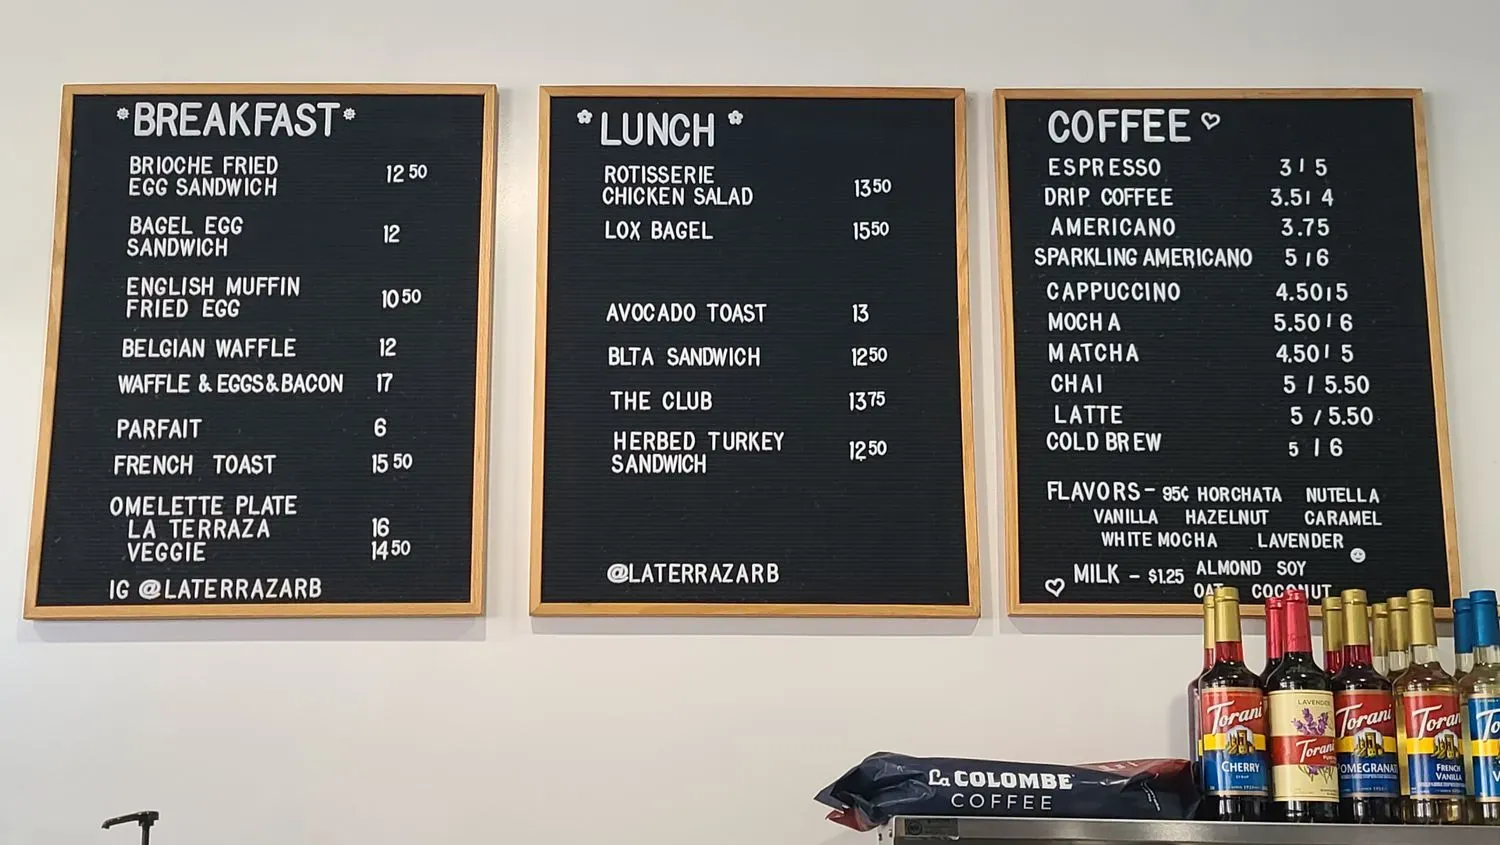 BREAKFAST
BRIOCHE FRIED
EGG SANDWICH 12 50
BAGEL EGG
SANDWICH 12
ENGLISH MUFFIN
FRIED EGG 10 50
BELGIAN WAFFLE 12
WAFFLE & EGGS & BACON 17
PARFAIT 6
FRENCH TOAST 15 50
OMELETTE PLATE
LA TERRAZA 16
VEGGIE 14 50
IG @LATERRAZARB
LUNCH
ROTISSERIE
CHICKEN SALAD 13 50
LOX BAGEL 15 50
AVOCADO TOAST 13
BLTA SANDWICH 12 50
THE CLUB 13 75
HERBED TURKEY
SANDWICH 12 50
@LATERRAZARB
COFFEE
ESPRESSO 3 / 5
DRIP COFFEE 3.5 / 4
AMERICANO 3.75
SPARKLING AMERICANO 5 / 6
CAPPUCCINO 4.50 / 5
MOCHA 5.50 / 6
MATCHA 4.50 / 5
CHAI 5 / 5.50
LATTE 5 / 5.50
COLD BREW 5 / 6
FLAVORS - 95¢ HORCHATA NUTELLA
VANILLA HAZELNUT CARAMEL
WHITE MOCHA LAVENDER
MILK - $1.25 ALMOND SOY
OAT COCONUT
La COLOMBE
COFFEE
Torani
CHERRY
LAVENDER
Torani
Torani
POMEGRANATE
Torani
FRENCH
VANILLA